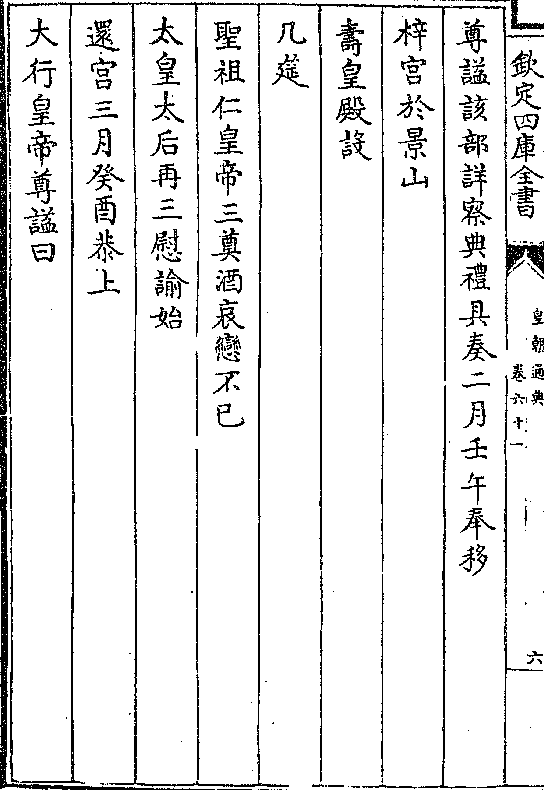 欽定四庫全書
皇朝通典
卷六十一
六
尊諡該部詳察典禮具奏二月壬午奉移
梓宮於景山
壽皇殿設
几筵
聖祖仁皇帝三奠酒哀戀不已
太皇太后再三慰諭始
還宮三月癸酉恭上
大行皇帝尊諡曰